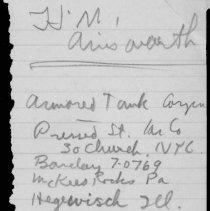 H. M.
Ainsworth
Armored Tank
Pressed St. Car Co
30 Church. NYC.
Barclay 7-0769
McKees Rocks Pa
Hegewisch Ill.